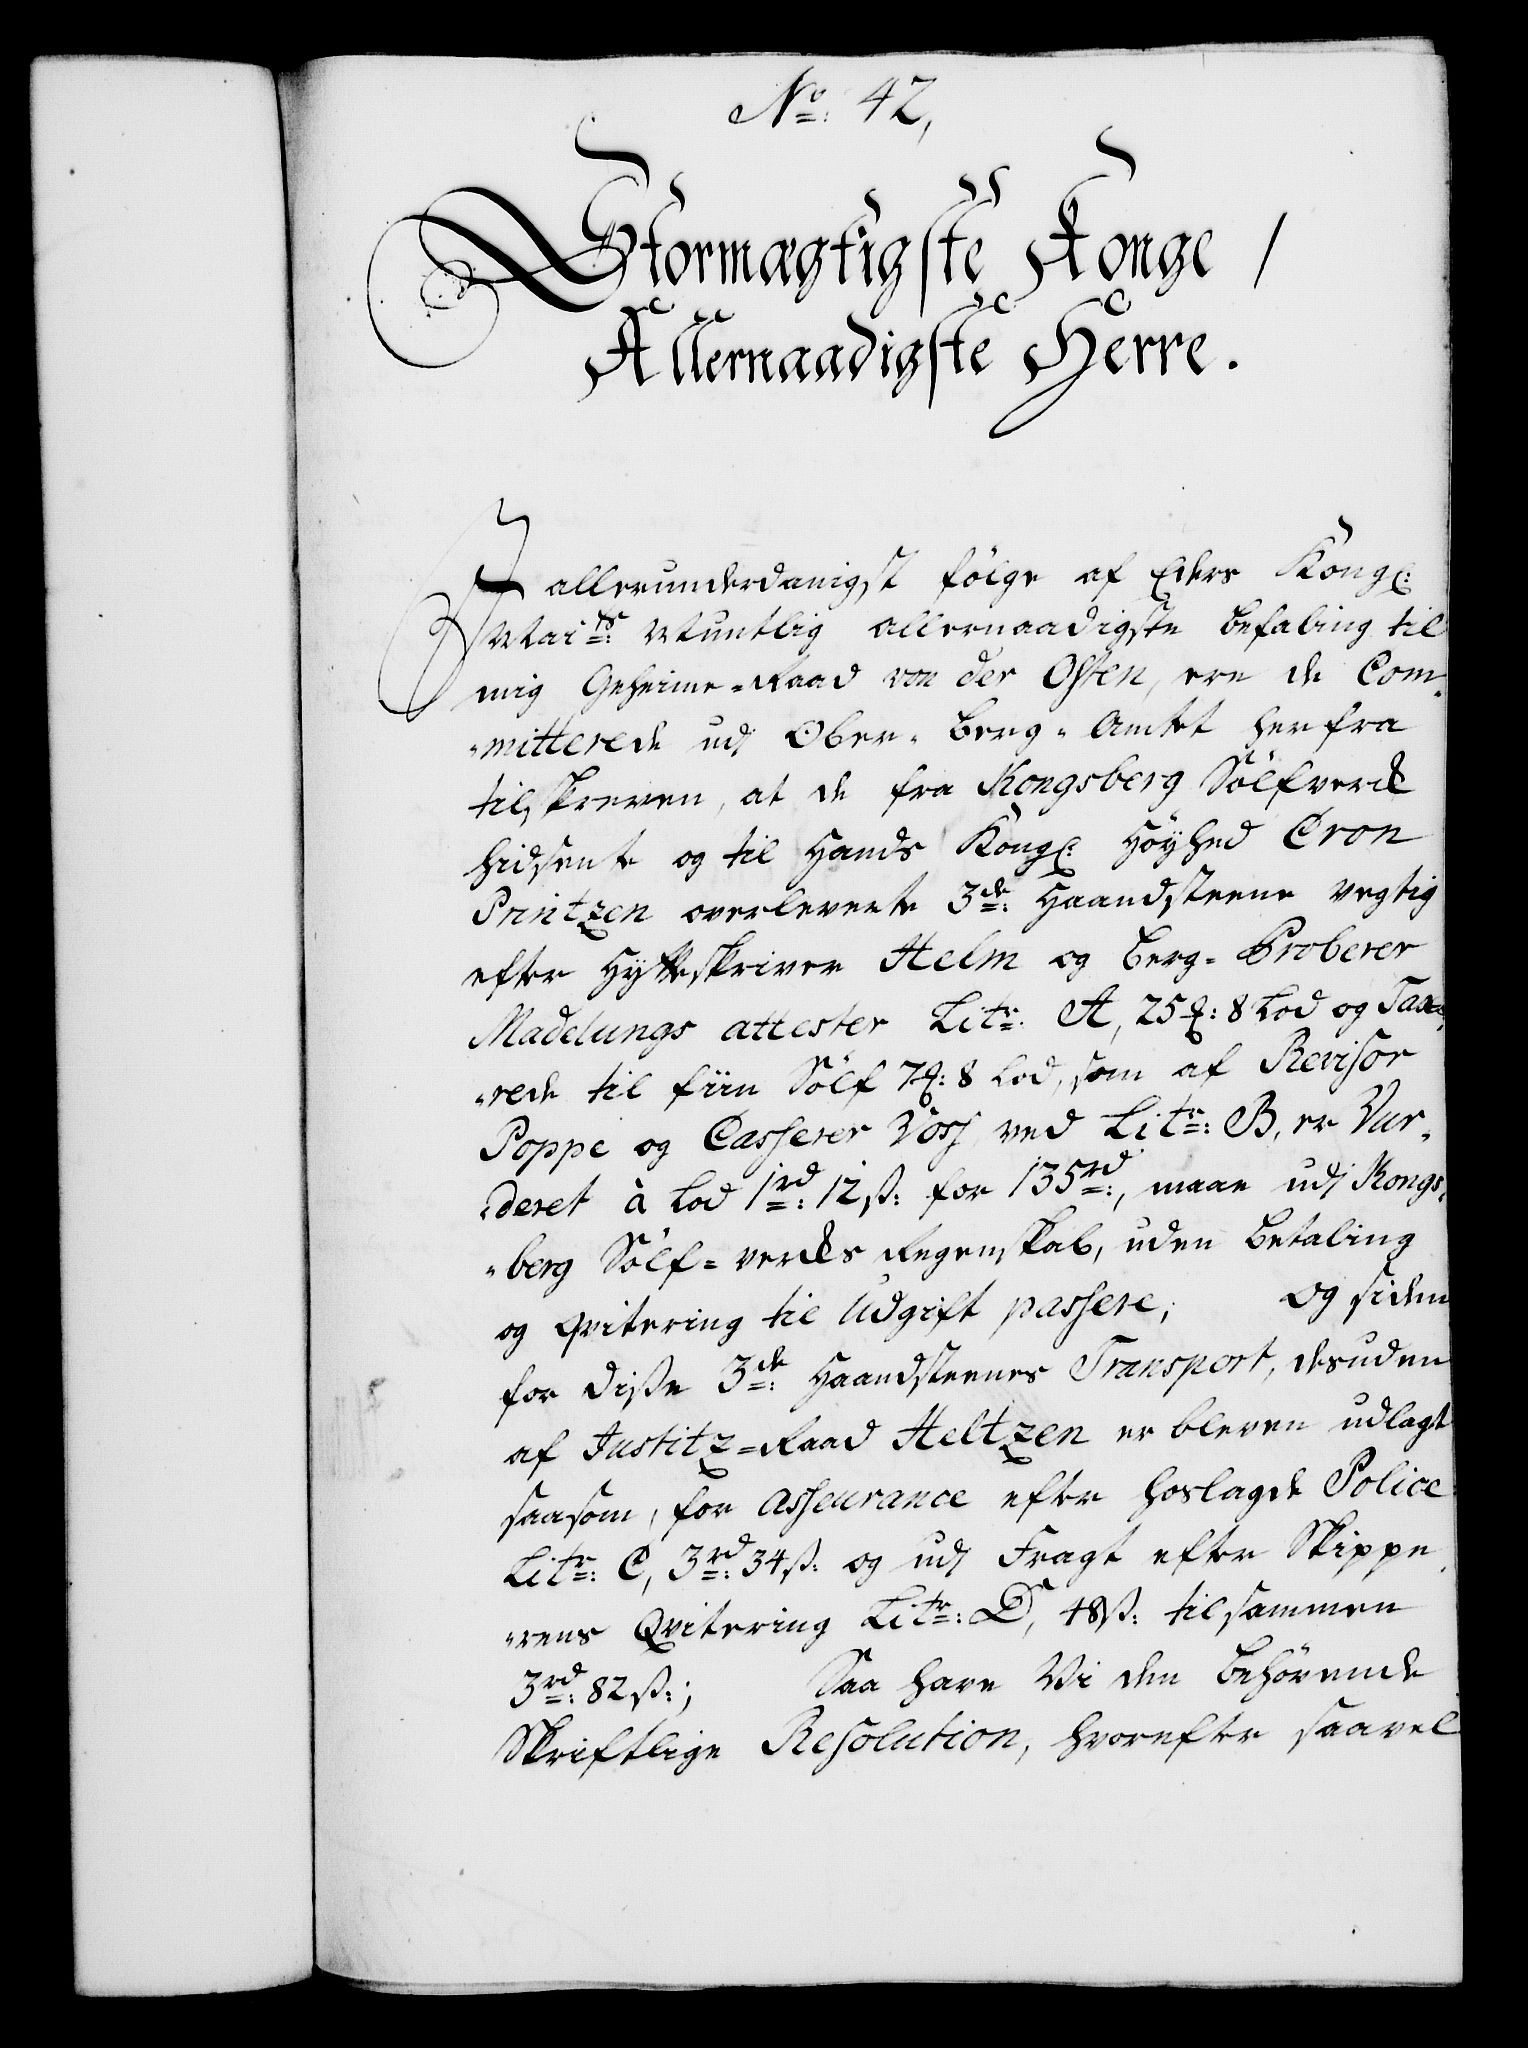 No: 42,
Stormægtigste Konge /
Allernaadigste Herre.
I allerunderdanigst fölge af Eders Kongl:
Maits: Muntlig allernaadigste befaling til
mig Geheime-Raad von der Osten, ere de Com-
-mitterede udi Ober-Berg-Amtet herfra
tilskreven, at de fra Kongsberg Sölfverk
hidsente og til Hands Kongl: Höyhed Cron
Printzen overleverte 3de: Haandsteene vegtig
efter Hytteskriver Helm og Berg-Proberer
Madelungs attester Litr: A, 25 ℔: 8 Lod og Taxe-
-rede til fiin Sölf 7 ℔: 8 Lod, som af Revisor
Poppe og Casserer Voss ved Litr: B, er Vur-
-deret à Lod 1rd: 12 ß: for 135rd:, maae udi Kongs-
-berg Sölf-verks Regenskab, uden betaling
og qvitering til Udgift passere; Og siden
for disse 3de: Haandsteenes Transport, desuden
af Justitz-Raad Heltzen er bleven udlagt
saasom, for asseurance efter hoslagde Police
Litr: C, 3rd: 34 ß: og udi Fragt efter Skippe-
-rens Qvitering Litr: D, 48 ß: tilsammen
3rd: 82 ß:; Saa have Vi den behörende
Skriftlige Resolution, hvorefter saavel